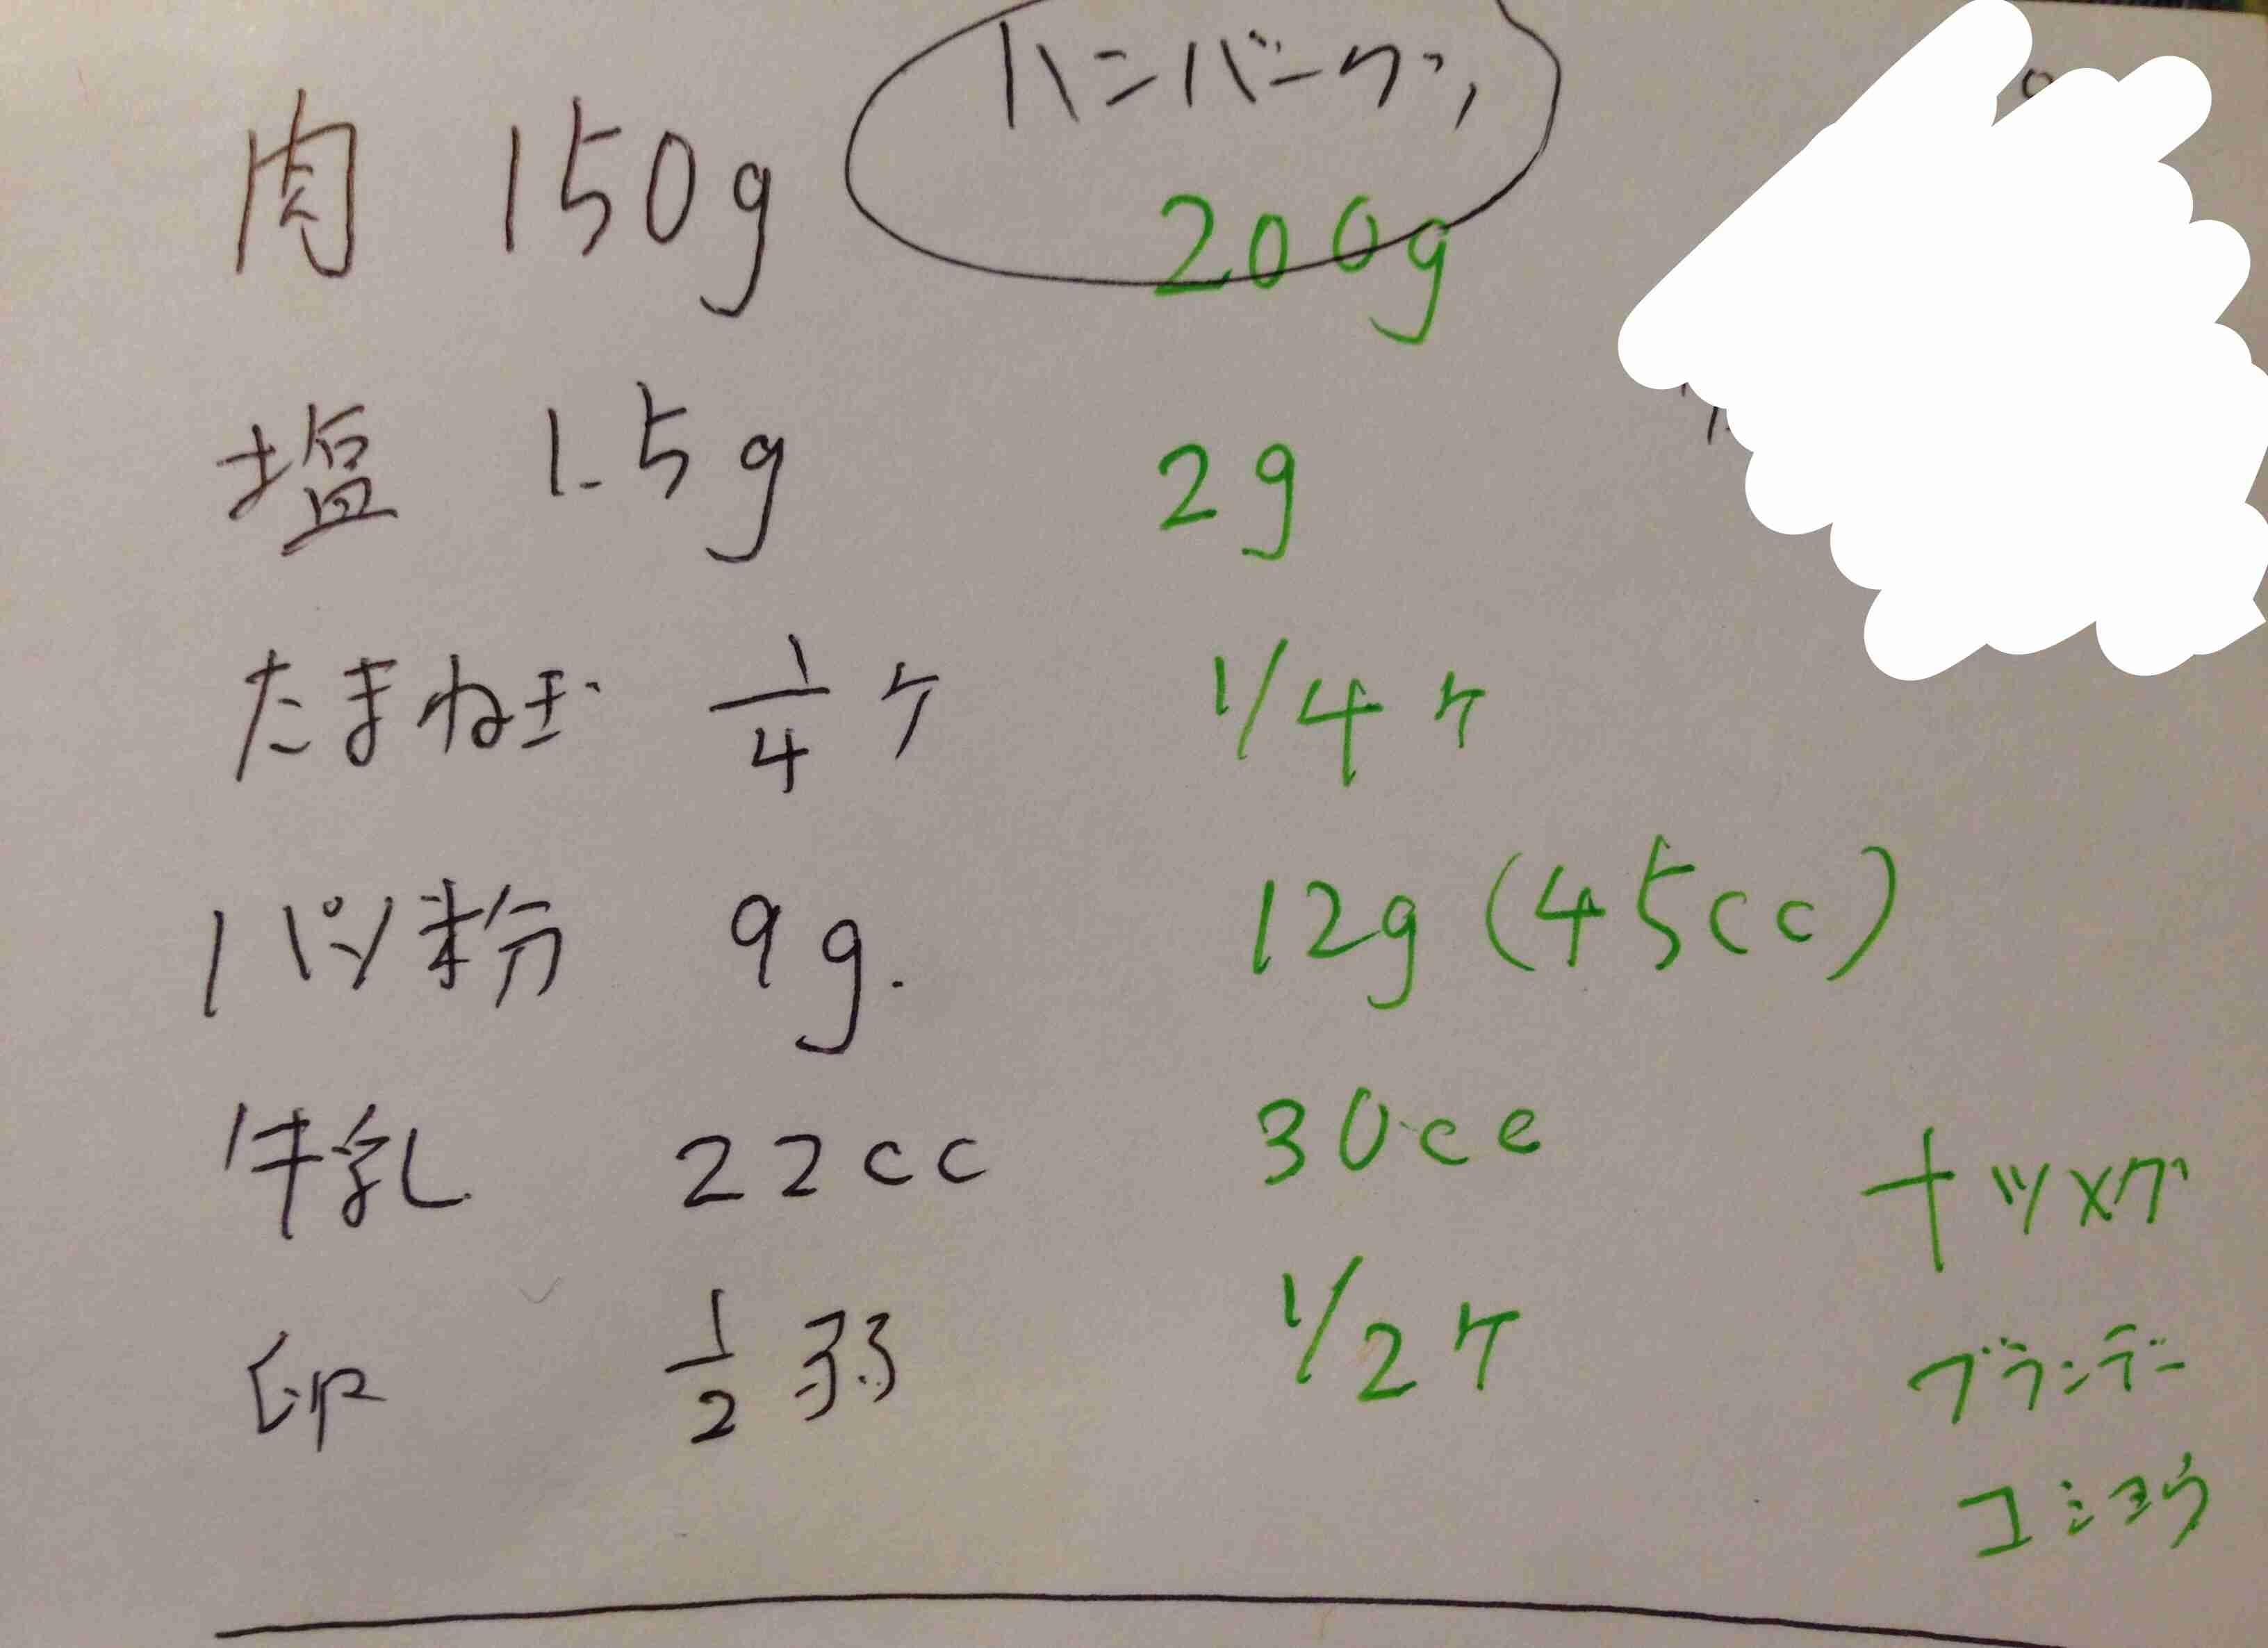 ハンバーグ
肉 150g 200g
塩 1.5g 2g
たまねぎ 1/4ヶ 1/4ヶ
パン粉 9g. 12g (45cc)
牛乳 22cc 30cc
ナツメグ
卵 1/2弱 1/2ヶ
ブランデー
コショウ